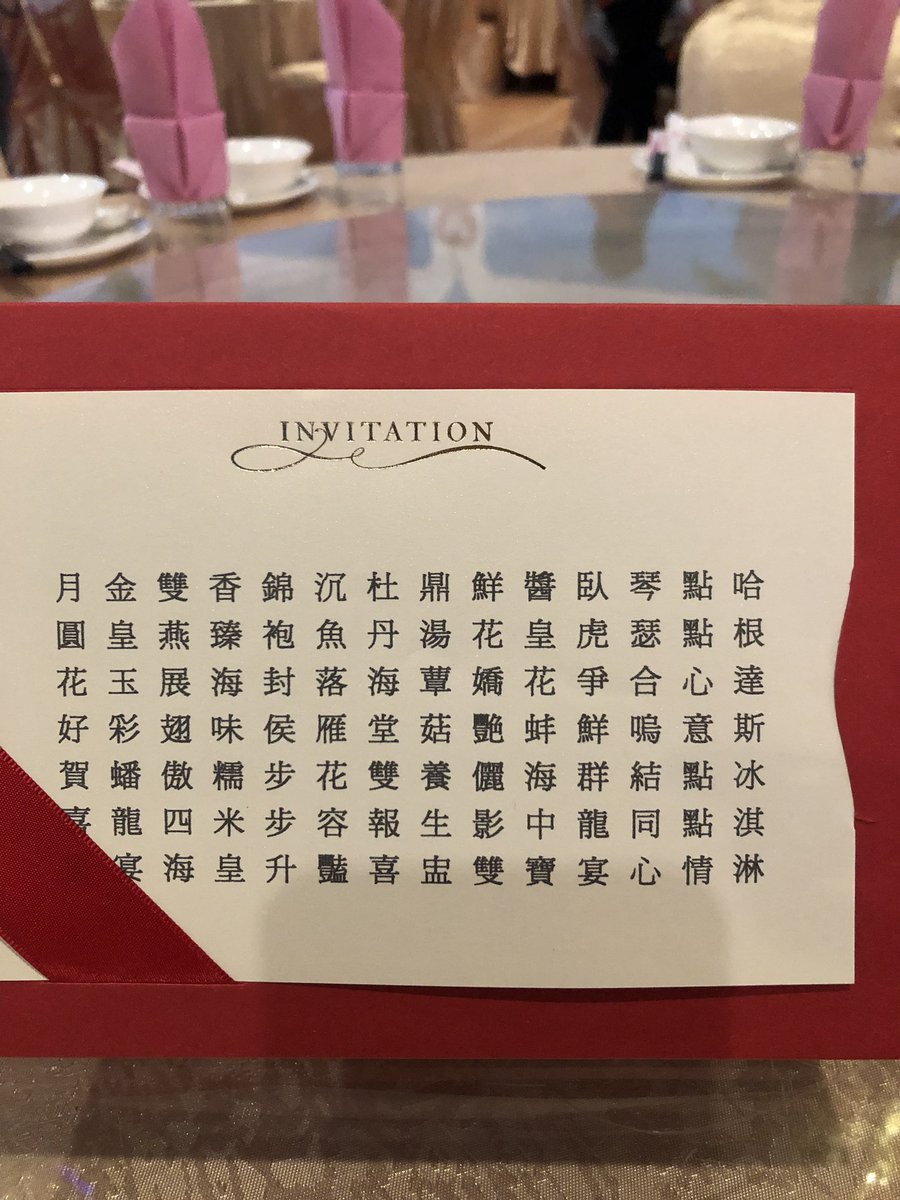 INVITATION
月圓花好賀喜
金皇玉彩蟠龍宴
雙燕展翅傲四海
香臻海味糯米皇
錦袍封侯步步升
沉魚落雁花容豔
杜丹海堂雙報喜
鼎湯蕈菇養生盅
鮮花嬌艷儷影雙
醬皇花蚌海中寶
臥虎爭鮮群龍宴
琴瑟合嗚結同心
點點心意點點情
哈根達斯冰淇淋